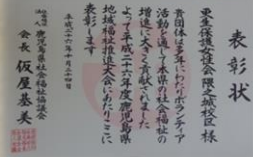 表彰状
更生保護女性会隈之城校区様
貴団体は多年にわたりボランティア
活動を通して本県の社会福祉の
増進に大きく貢献されました
よって平成二十六年度鹿児島県
地域福祉推進大会にあたりここに
表彰します
平成二十六年十月二十四日
社会福祉法人鹿児島県社会福祉協議会
会長 仮屋基美